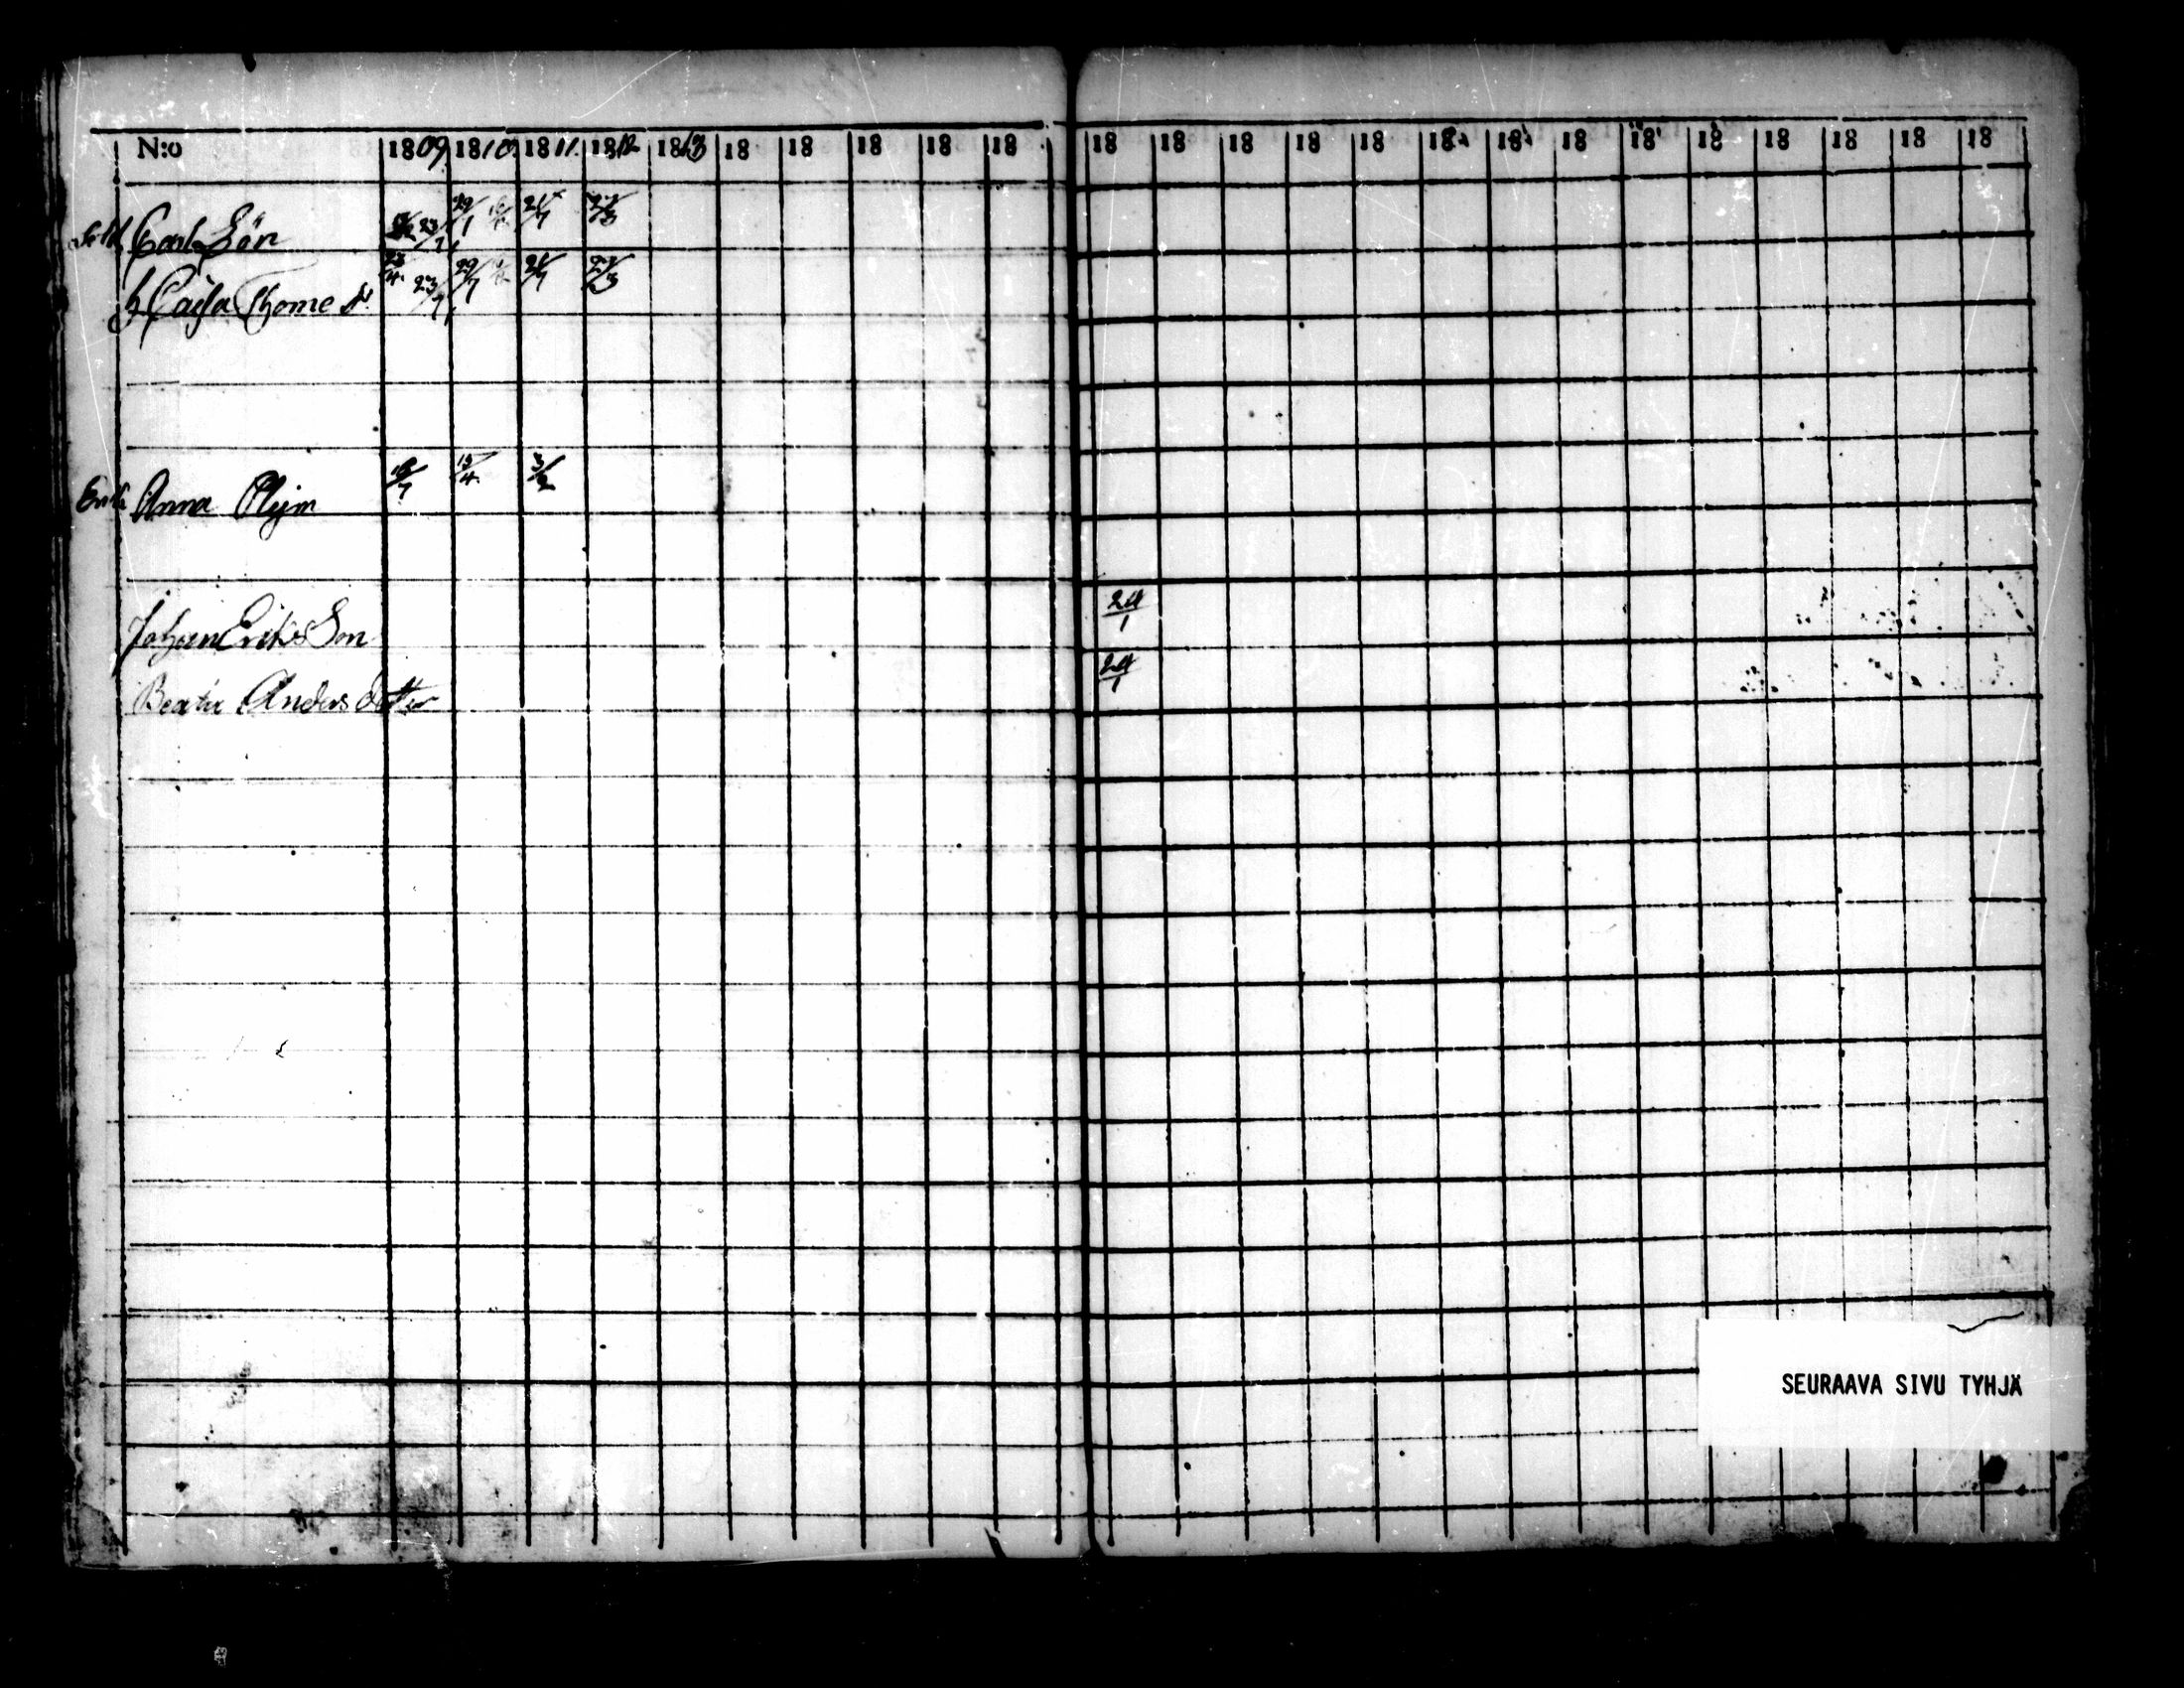 N:o 1809 1810 1811 1812 1813 18 18 18 18 18 18 18 18 18 18 18 18 18 18 18 18 18 18 18
Sold Carl Lön 23/7 29/1 21/7 27/3
h Caisa Thome dr 23/4 23/7 29/7 21/7 27/3
Enk Anna Plym 16/7 12/4 3/2
Johan Eriks Son 24/1
Beata Anders dotter 24/1
SEURAAVA SIVU TYHJÄ